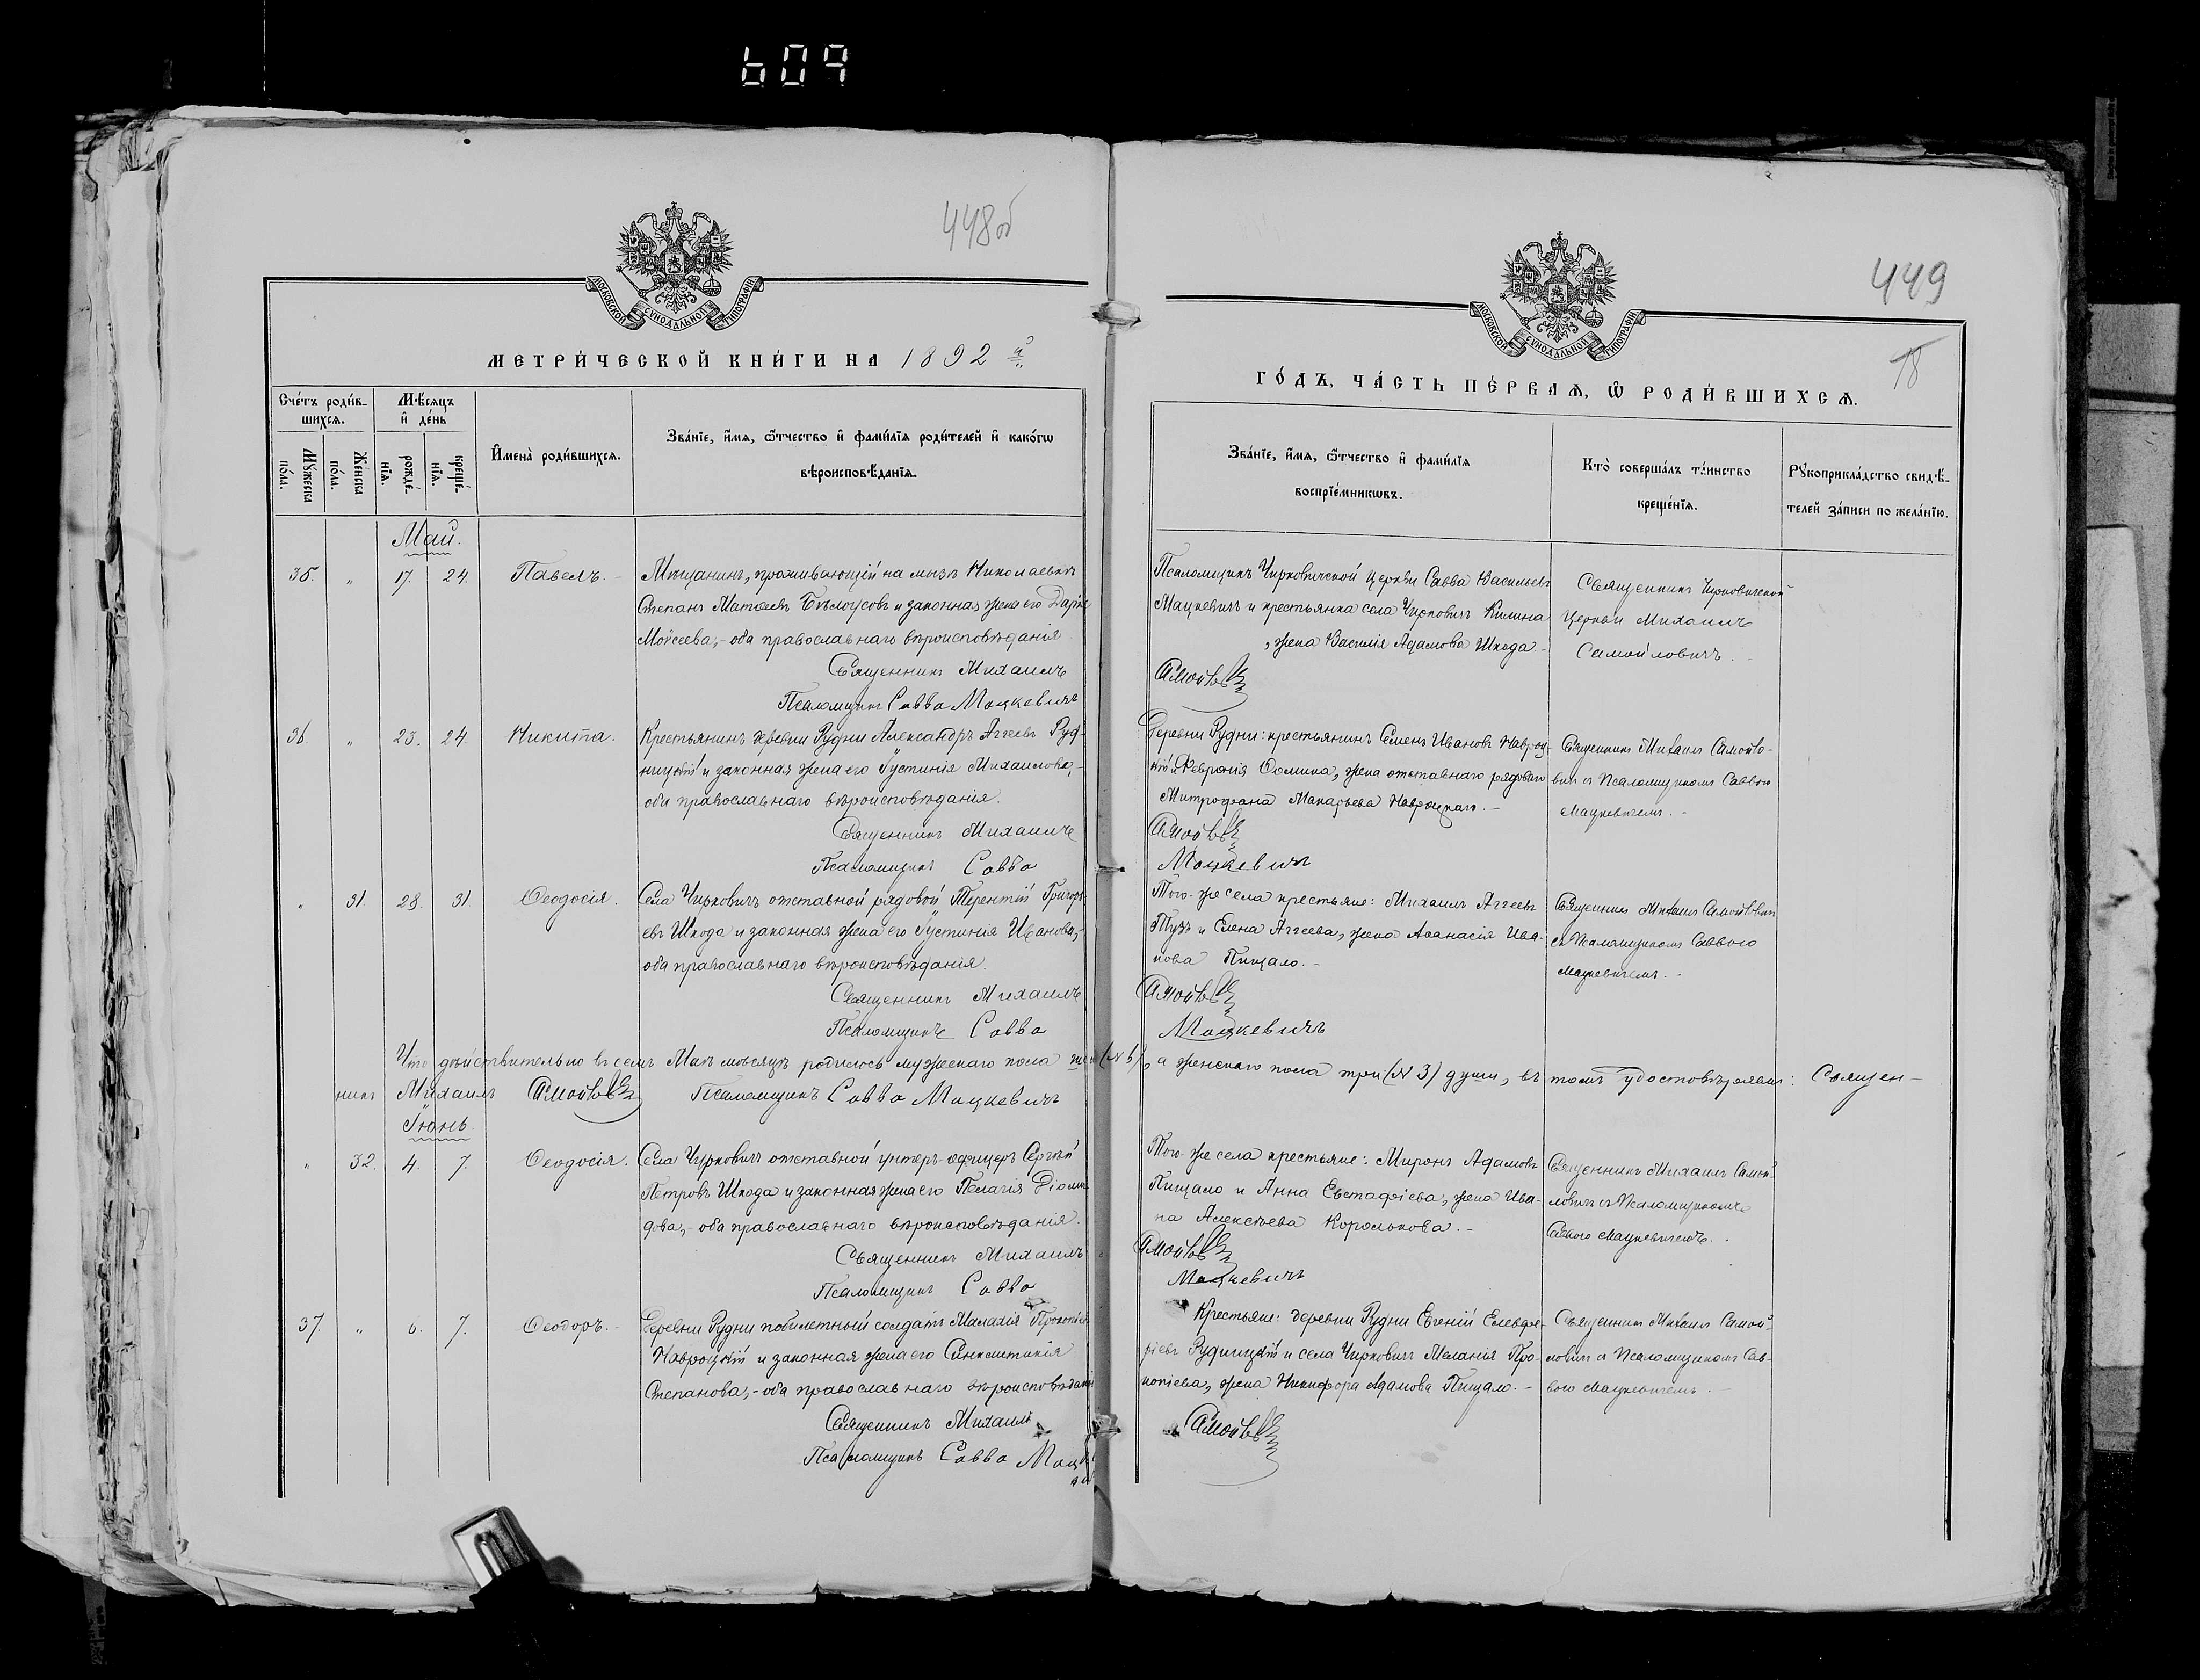 609
448об
МОСКОВСКОЙ СУНОДАЛЬНОЙ ТИПОГРАФІИ
МЕТРИ́ЧЕСКОЙ КНИ́ГИ НА 1892 й
Сче́тъ роди́в-
шихся.
Мѣ́сяцъ
и҆ де́нь
Мꙋ́жеска
по́ла.
Же́нска
по́ла.
рожде́-
нїѧ.
креще́-
нїѧ.
И҆мена̀ роди́вшихся.
Зва́нїе, и҆́мѧ, ѻ҆́тчество и҆ фами́лїѧ роди́телей и҆ како́гѡ
вѣроисповѣ́данїѧ.
Май.
35. " 17. 24. Павелъ. Мѣщанинъ, проживающій на мызѣ Николаевкѣ
Степанъ Матѳеевъ Бѣлоусовъ и законная жена его Дарія
Моѵсеева,- оба православнаго вѣроисповѣданія
Священникъ Михаилъ
Псаломщикъ Савва Мацкевичъ
36. " 23. 24. Никита. Крестьянинъ деревни Рудни Александръ Аггеевъ Руд-
ницкій и законная жена его Іустинія Михаилова,-
оба православнаго вѣроисповѣданія.
Священникъ Михаилъ
Псаломщикъ Савва
" 31. 28. 31. Ѳеодосія. Села Чирковичъ отставной рядовой Терентій Григорь-
евъ Шкода и законная жена его Іустинія Иванова,-
оба православнаго вѣроисповѣданія.
Священникъ Михаилъ
Псаломщикъ Савва
Что дѣйствительно въ семъ Маѣ мѣсяцѣ родилось мужескаго пола (№ 6), а женскаго пола три (№ 3) души, въ томъ удостовѣряемъ: Священ-
никъ Михаилъ Самойловичъ Псаломщикъ Савва Мацкевичъ
Іюнь.
" 32. 4. 7. Ѳеодосія. Села Чирковичъ отставной унтеръ-офицеръ Сергѣй
Петровъ Шкода и законная жена его Пелагія Діоми-
дова,- оба православнаго вѣроисповѣданія.
Священникъ Михаилъ
Псаломщикъ Савва
37. " 6. 7. Ѳеодоръ. Деревни Рудни побилетный солдатъ Малахія Прокопіевъ
Навроцкій и законная жена его Синклитикія
Степанова,- оба православнаго вѣроисповѣданія
Священникъ Михаилъ
Псаломщикъ Савва
449
18
МОСКОВСКОЙ СУНОДАЛЬНОЙ ТИПОГРАФІИ
ГО́ДЪ, ЧА́СТЬ ПЕ́РВАѦ, Ѡ҆ РОДИ́ВШИХСѦ.
Зва́нїе, и҆́мѧ, ѻ҆́тчество и҆ фами́лїѧ
воспрїе́мникѡвъ.
Кто̀ соверша́лъ та́инство
креще́нїѧ.
Рꙋкоприкла́дство свидѣ́-
телей за́писи по жела́нїю.
Псаломщикъ Чирковичской церкви Савва Васильевъ
Мацкевичъ и крестьянка села Чирковичъ Килина
, жена Василія Адамова Шкода.
Священникъ Чирковичской
церкви Михаилъ
Самойловичъ.
Самойловичъ
Деревни Рудни: крестьянинъ Семенъ Ивановъ Навроц-
кій и Февронія Ѳомина, жена отставнаго рядоваго
Митрофана Макарьева Навроцкаго.
Священникъ Михаилъ Самойло-
вичъ съ Псаломщикомъ Саввою
Мацкевичемъ.
Самойловичъ
Мацкевичъ
Того-же села крестьяне: Михаилъ Аггеевъ
Тузъ и Елена Аггеева, жена Аѳанасія Ива-
нова Пищало.
Священникъ Михаилъ Самойловичъ
съ Псаломщикомъ Саввою
Мацкевичемъ.
Самойловичъ
Мацкевичъ
Того-же села крестьяне: Миронъ Адамовъ
Пищало и Анна Евстафіева, жена Ива-
на Алексѣева Королькова.
Священникъ Михаилъ Самой-
ловичъ съ Псаломщикомъ
Саввою Мацкевичемъ.
Самойловичъ
Мацкевичъ
Крестьяне: деревни Рудни Евгеній Елевфе-
ріевъ Рудницкій и села Чирковичъ Меланія Про-
копіева, жена Никифора Адамова Пищало.
Священникъ Михаилъ Самой-
ловичъ съ Псаломщикомъ Сав-
вою Мацкевичемъ.
Самойловичъ